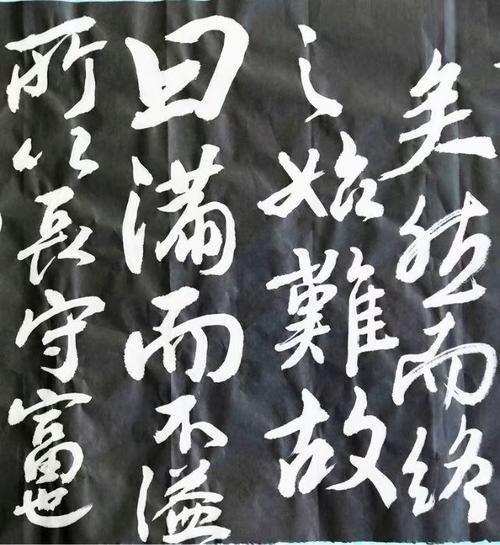 矣然而终
之始難故
曰满而不溢
所以長守富也